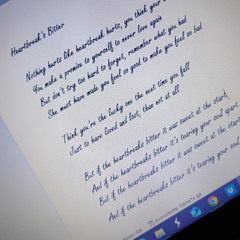 Heartbreak's Bitter
Nothing hurts like heartbreak hurts, you think your
You make a promise to yourself to never love again
But don't try too hard to forget, remember what you had
She must have made you feel so good to make you feel so bad
Think you're the lucky one the next time you fall
Just to have loved and lost, than not at all
But if the heartbreaks bitter it was sweet at the start,
And if the heartbreaks bitter it's tearing your soul apart
But if the heartbreaks bitter it was sweet at the start
And if the heartbreaks bitter it's tearing your soul